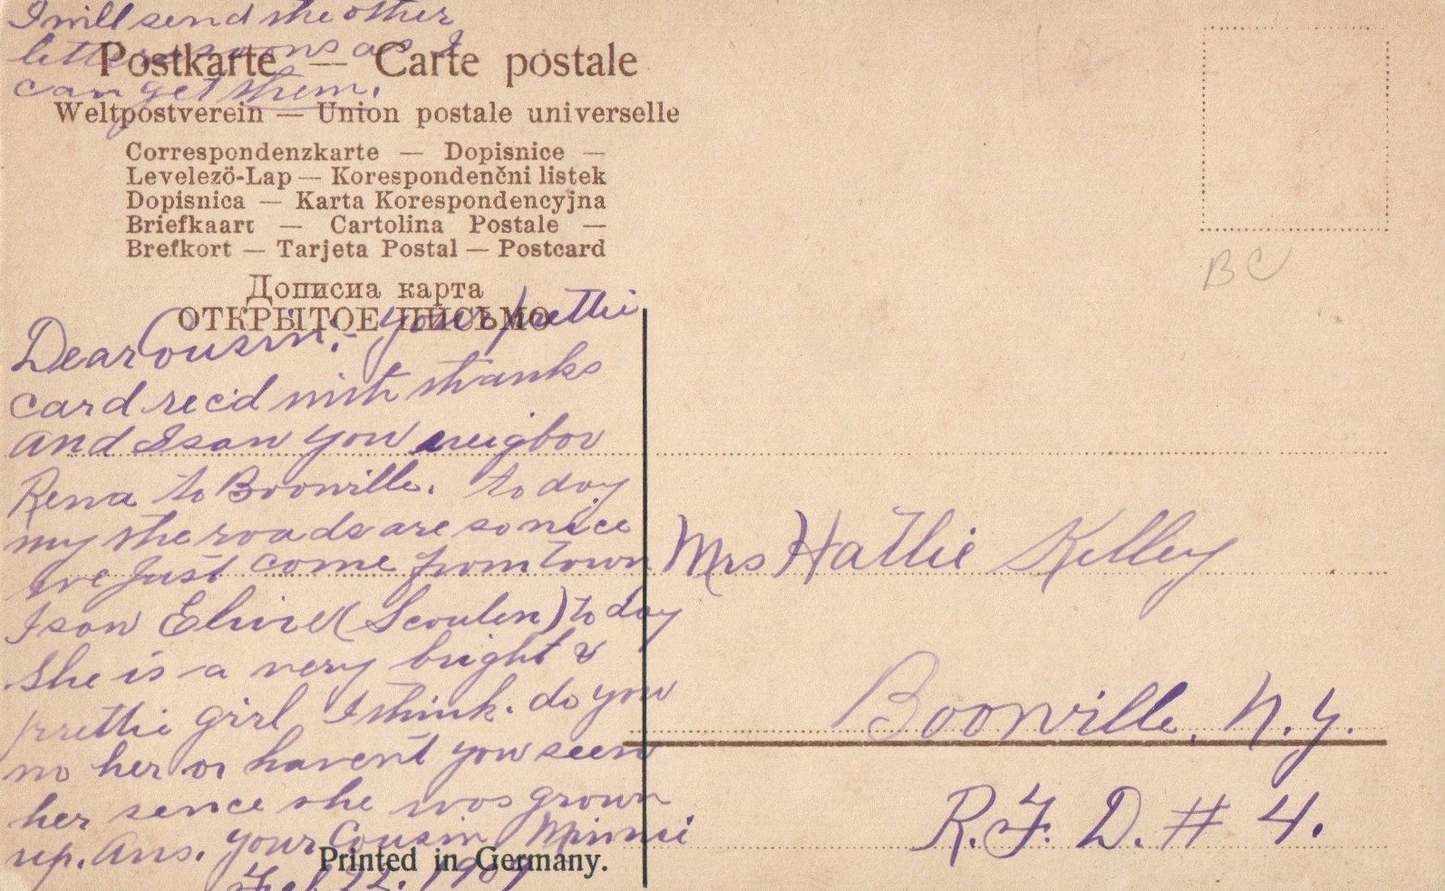 I will send the other
letters as soons as I
can get them.
Postkarte — Carte postale
Weltpostverein — Union postale universelle
Correspondenzkarte — Dopisnice —
Levelező-Lap — Korespondenčni listek
Dopisnica — Karta Korespondencyjna
Briefkaart — Cartolina Postale —
Brefkort — Tarjeta Postal — Postcard
Дописна карта
ОТКРЫТОЕ ПИСЬМО
Dear Cousin:- your prettie
card rec'd with thanks
and I saw you neigbor
Rena to Boonville. to day
my the roads are so nice
Ive just come from town
I saw (Scoulen) to day
she is a very bright &
prettie girl I think. do you
no her or havent you seen
her sence she was grown
up. Ans. your Cousin Minnie
Feb 22. 1909
Printed in Germany.
BC
Mrs Hattie Kelley
Boonville, N.Y.
R.F.D. # 4.